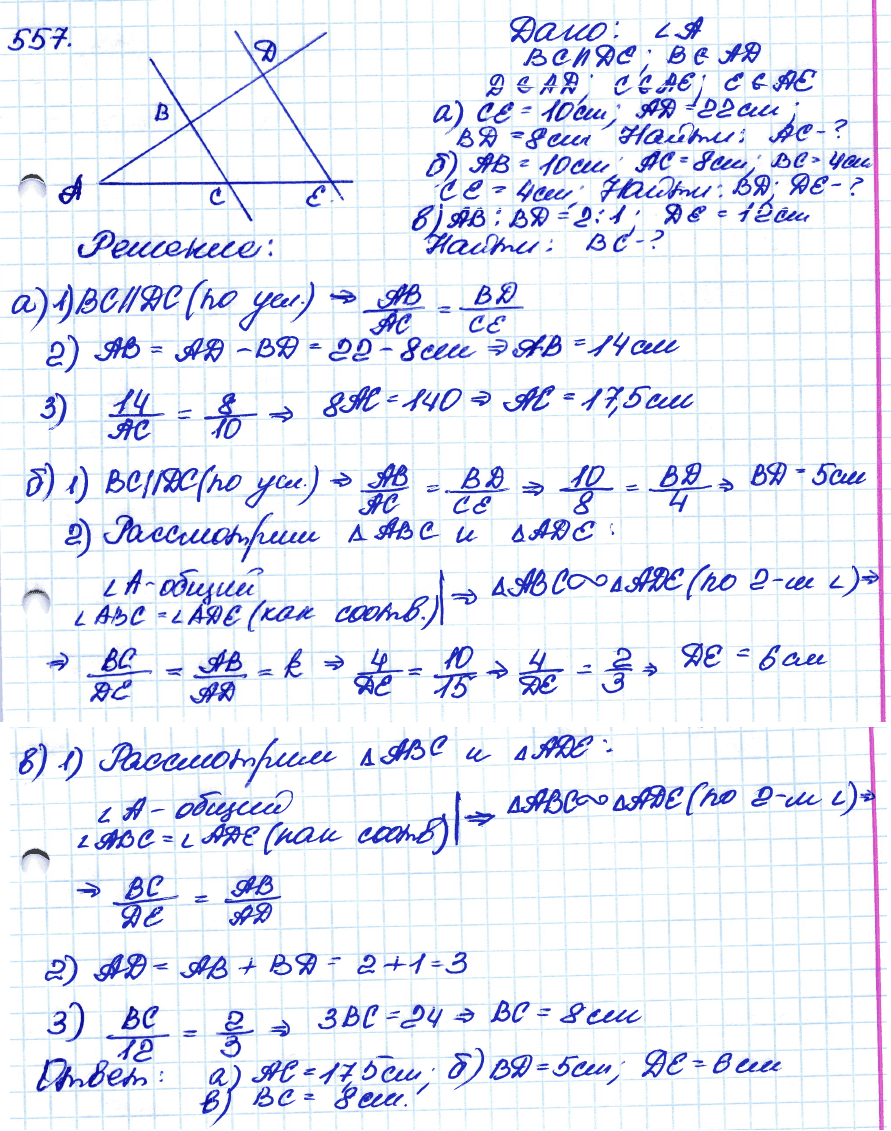 557.
D
B
A
C
E
Дано: ∠A
BC∥DE; B∈AD
D∈AD; C∈AE; E∈AE
а) CE = 10см; AD = 22см;
BD = 8см Найти: AC-?
б) AB = 10см; AC = 8см; BC = 4см
CE = 4см; Найти: BD; DE-?
в) AB : BD = 2 : 1; DE = 12см
Найти: BC-?
Решение:
а) 1) BC∥DC (по усл.) ⇒ AB/AC = BD/CE
2) AB = AD - BD = 22 - 8см ⇒ AB = 14см
3) 14/AC = 8/10 ⇒ 8AC = 140 ⇒ AC = 17,5см
б) 1) BC∥DC (по усл.) ⇒ AB/AC = BD/CE ⇒ 10/8 = BD/4 ⇒ BD = 5см
2) Рассмотрим △ABC и △ADE:
∠A - общий
∠ABC = ∠ADE (как соотв.) | ⇒ △ABC∾△ADE (по 2-м ∠) ⇒
⇒ BC/DE = AB/AD = k ⇒ 4/DE = 10/15 ⇒ 4/DE = 2/3 ⇒ DE = 6см
в) 1) Рассмотрим △ABC и △ADE:
∠A - общий
∠ABC = ∠ADE (как соотв) | ⇒ △ABC∾△ADE (по 2-м ∠) ⇒
⇒ BC/DE = AB/AD
2) AD = AB + BD = 2 + 1 = 3
3) BC/12 = 2/3 ⇒ 3BC = 24 ⇒ BC = 8см
Ответ: а) AC = 17,5см; б) BD = 5см; DE = 6см
в) BC = 8см.